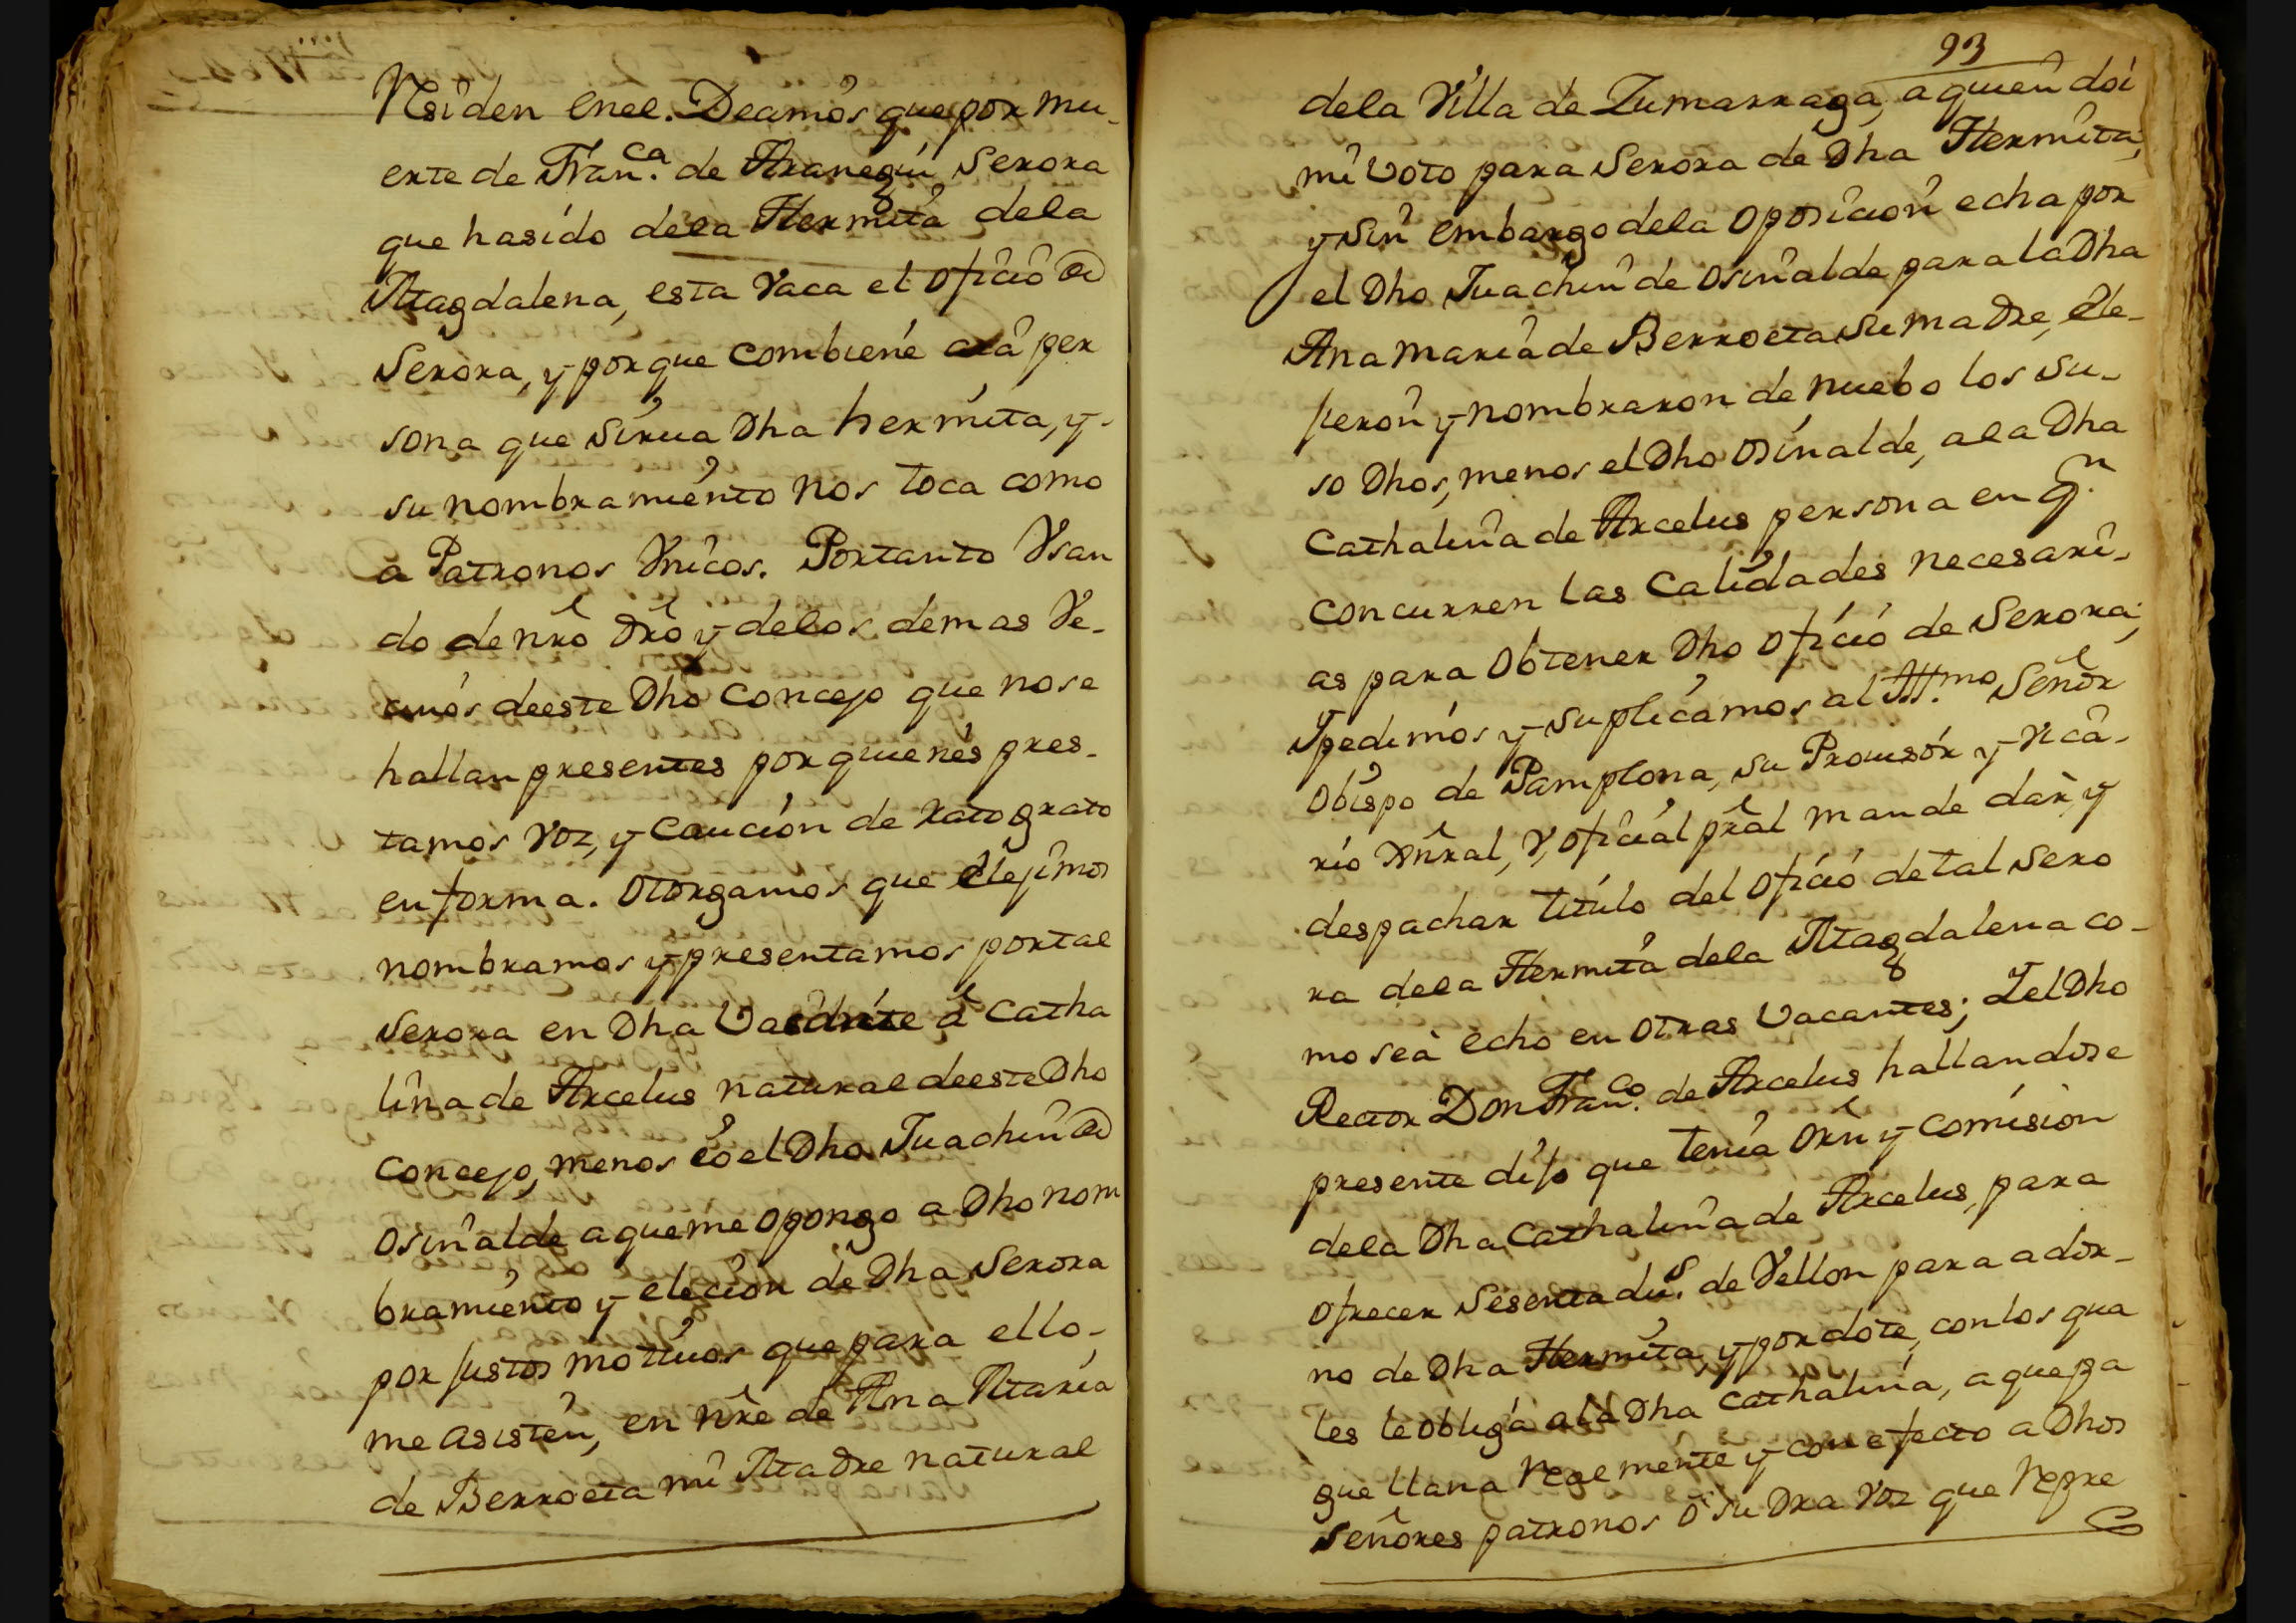 Residen enel. Decimos que por mu-
erte de Fran.ca de Aranegui Serora
que hasido dela Hermita dela
Magdalena, esta Vaca el oficio de
Serora, y porque combiene aia per
sona que sirua Dha hermita, y-
su nombramiento nos toca como
a Patronos Vnicos. Portanto Vsan
do de nro dro y delos demas Ve-
cinos deeste Dho Concejo que nose
hallan presentes por quienes pres-
tamos Voz, y Caución de rato grato
en forma. otorgamos que elejimos
nombramos y presentamos portal
Serora en Dha Vacante â Catha
lina de Arcelus natural deeste Dho
Concejo, menos io el Dho Juachin de
osinalde aqueme opongo a Dho nom
bramiento y elecion de Dha Serora
por justos motiuos que para ello,
me asisten, en nre de Ana Maria
de Berroeta mi Madre natural
93
dela Villa de Zumarraga, a quien doi
mi Voto para Serora de Dha Hermita,
y sin embargo dela oposicion echa por
el Dho Juachin de osinalde para la Dha
Ana maria de Berroeta su madre, ele-
jeron y nombraron de nuebo los su-
so Dhos, menos el Dho osinalde, ala Dha
Cathalina de Arcelus persona en qn.
concurren las Calidades necesari-
as para obtener Dho oficio de Serora;
Ypedimos y suplicamos al Ill.mo Señor
obispo de Pamplona, su Prouisor y Vica-
rio Gnral, y oficial pral mande dar, y
despachar titulo del oficio de tal Sero
ra dela Hermita dela Magdalena co-
mo sea echo en otras Vacantes; Iel Dho
Rector Don Fran.co de Arcelus hallandose
presente dijo que tenia orn y comision
dela Dha Cathalina de Arcelus, para
ofrecer Sesenta du.s de Vellon para ador-
no de Dha Hermita, y por dote, con los qua
les le obliga ala Dha Cathalina, a que pa
gue llana Realmente y con efecto a Dhos
Señores patronos o su Dra Voz que Repre